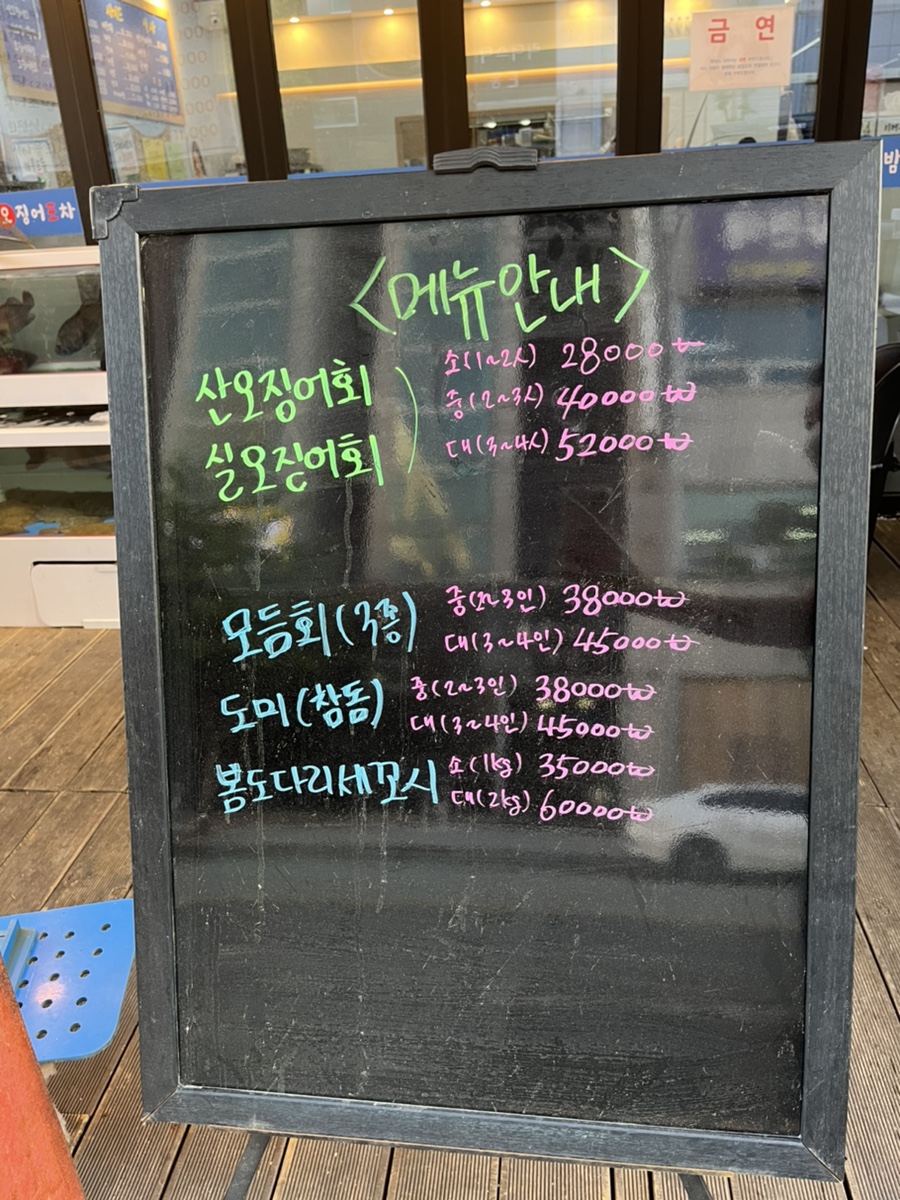 금 연
오징어포차
밤
<메뉴안내>
산오징어회
실오징어회
소(1~2人) 28000₩
중(2~3人) 40000₩
대(3~4人) 52000₩
모듬회(3종) 중(2~3인) 38000₩
대(3~4인) 45000₩
도미(참돔) 중(2~3인) 38000₩
대(3~4인) 45000₩
봄도다리세꼬시 소(1kg) 35000₩
대(2kg) 60000₩